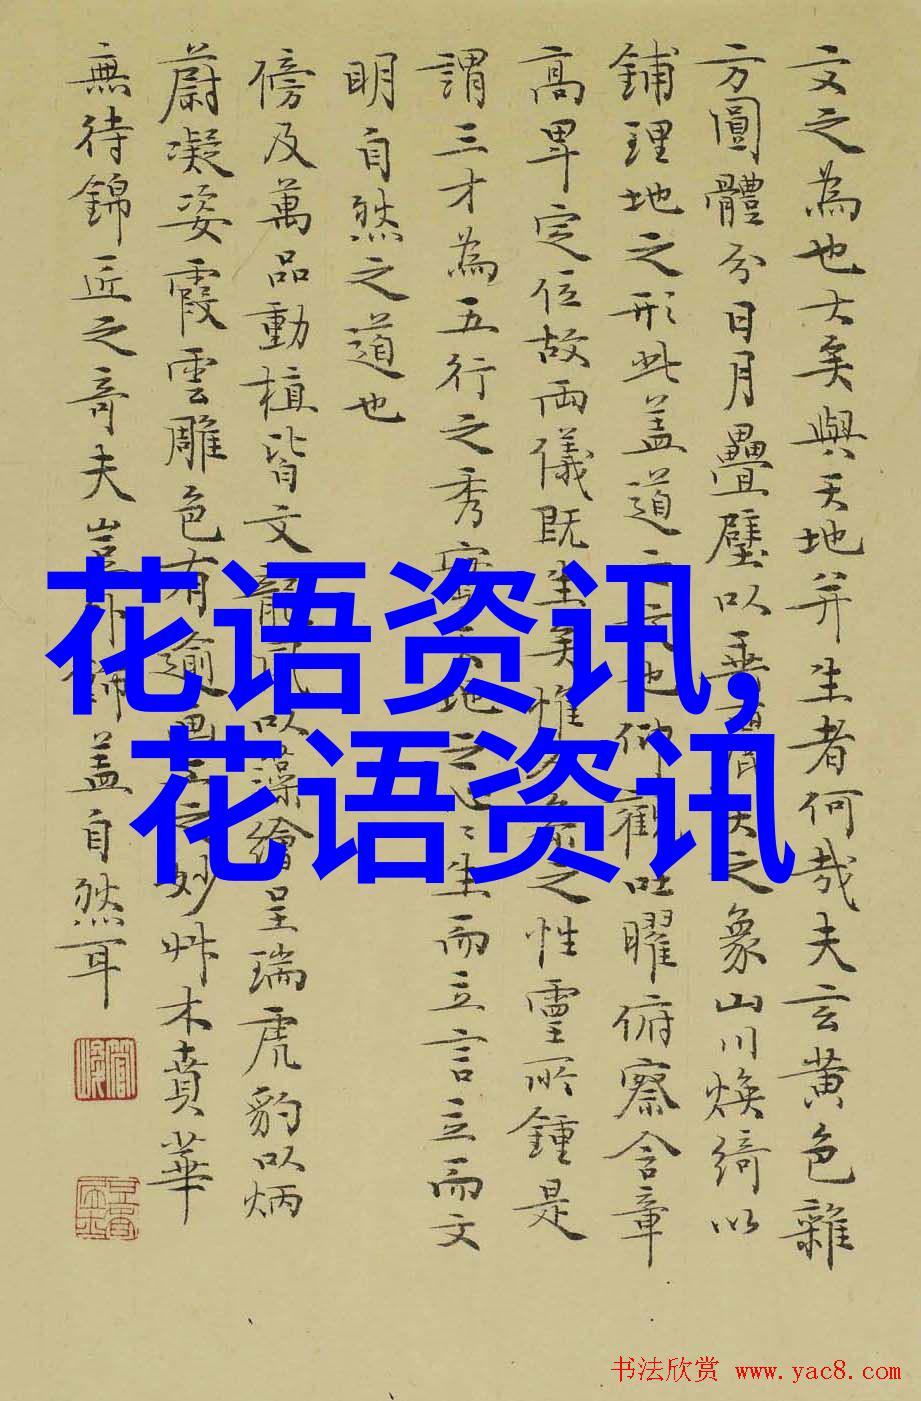 文之為也大矣與天地并生者何哉夫玄黄色雜
方圓體分日月疊璧以垂麗天之象山川煥綺以
鋪理地之形此盖道之文也仰觀吐曜俯察含章
高卑定位故兩儀既生矣惟人參之性靈所鍾是
謂三才為五行之秀實天地之心〻生而立言立而文
明自然之道也
傍及萬品動植皆文龍鳳以藻繪呈瑞虎豹以炳
蔚凝姿霞雲雕色有逾畫工之妙艸木賁華
無待錦匠之奇夫豈外飾盖自然耳
花语资讯,
花语资讯
书法欣赏 www.yac8.com